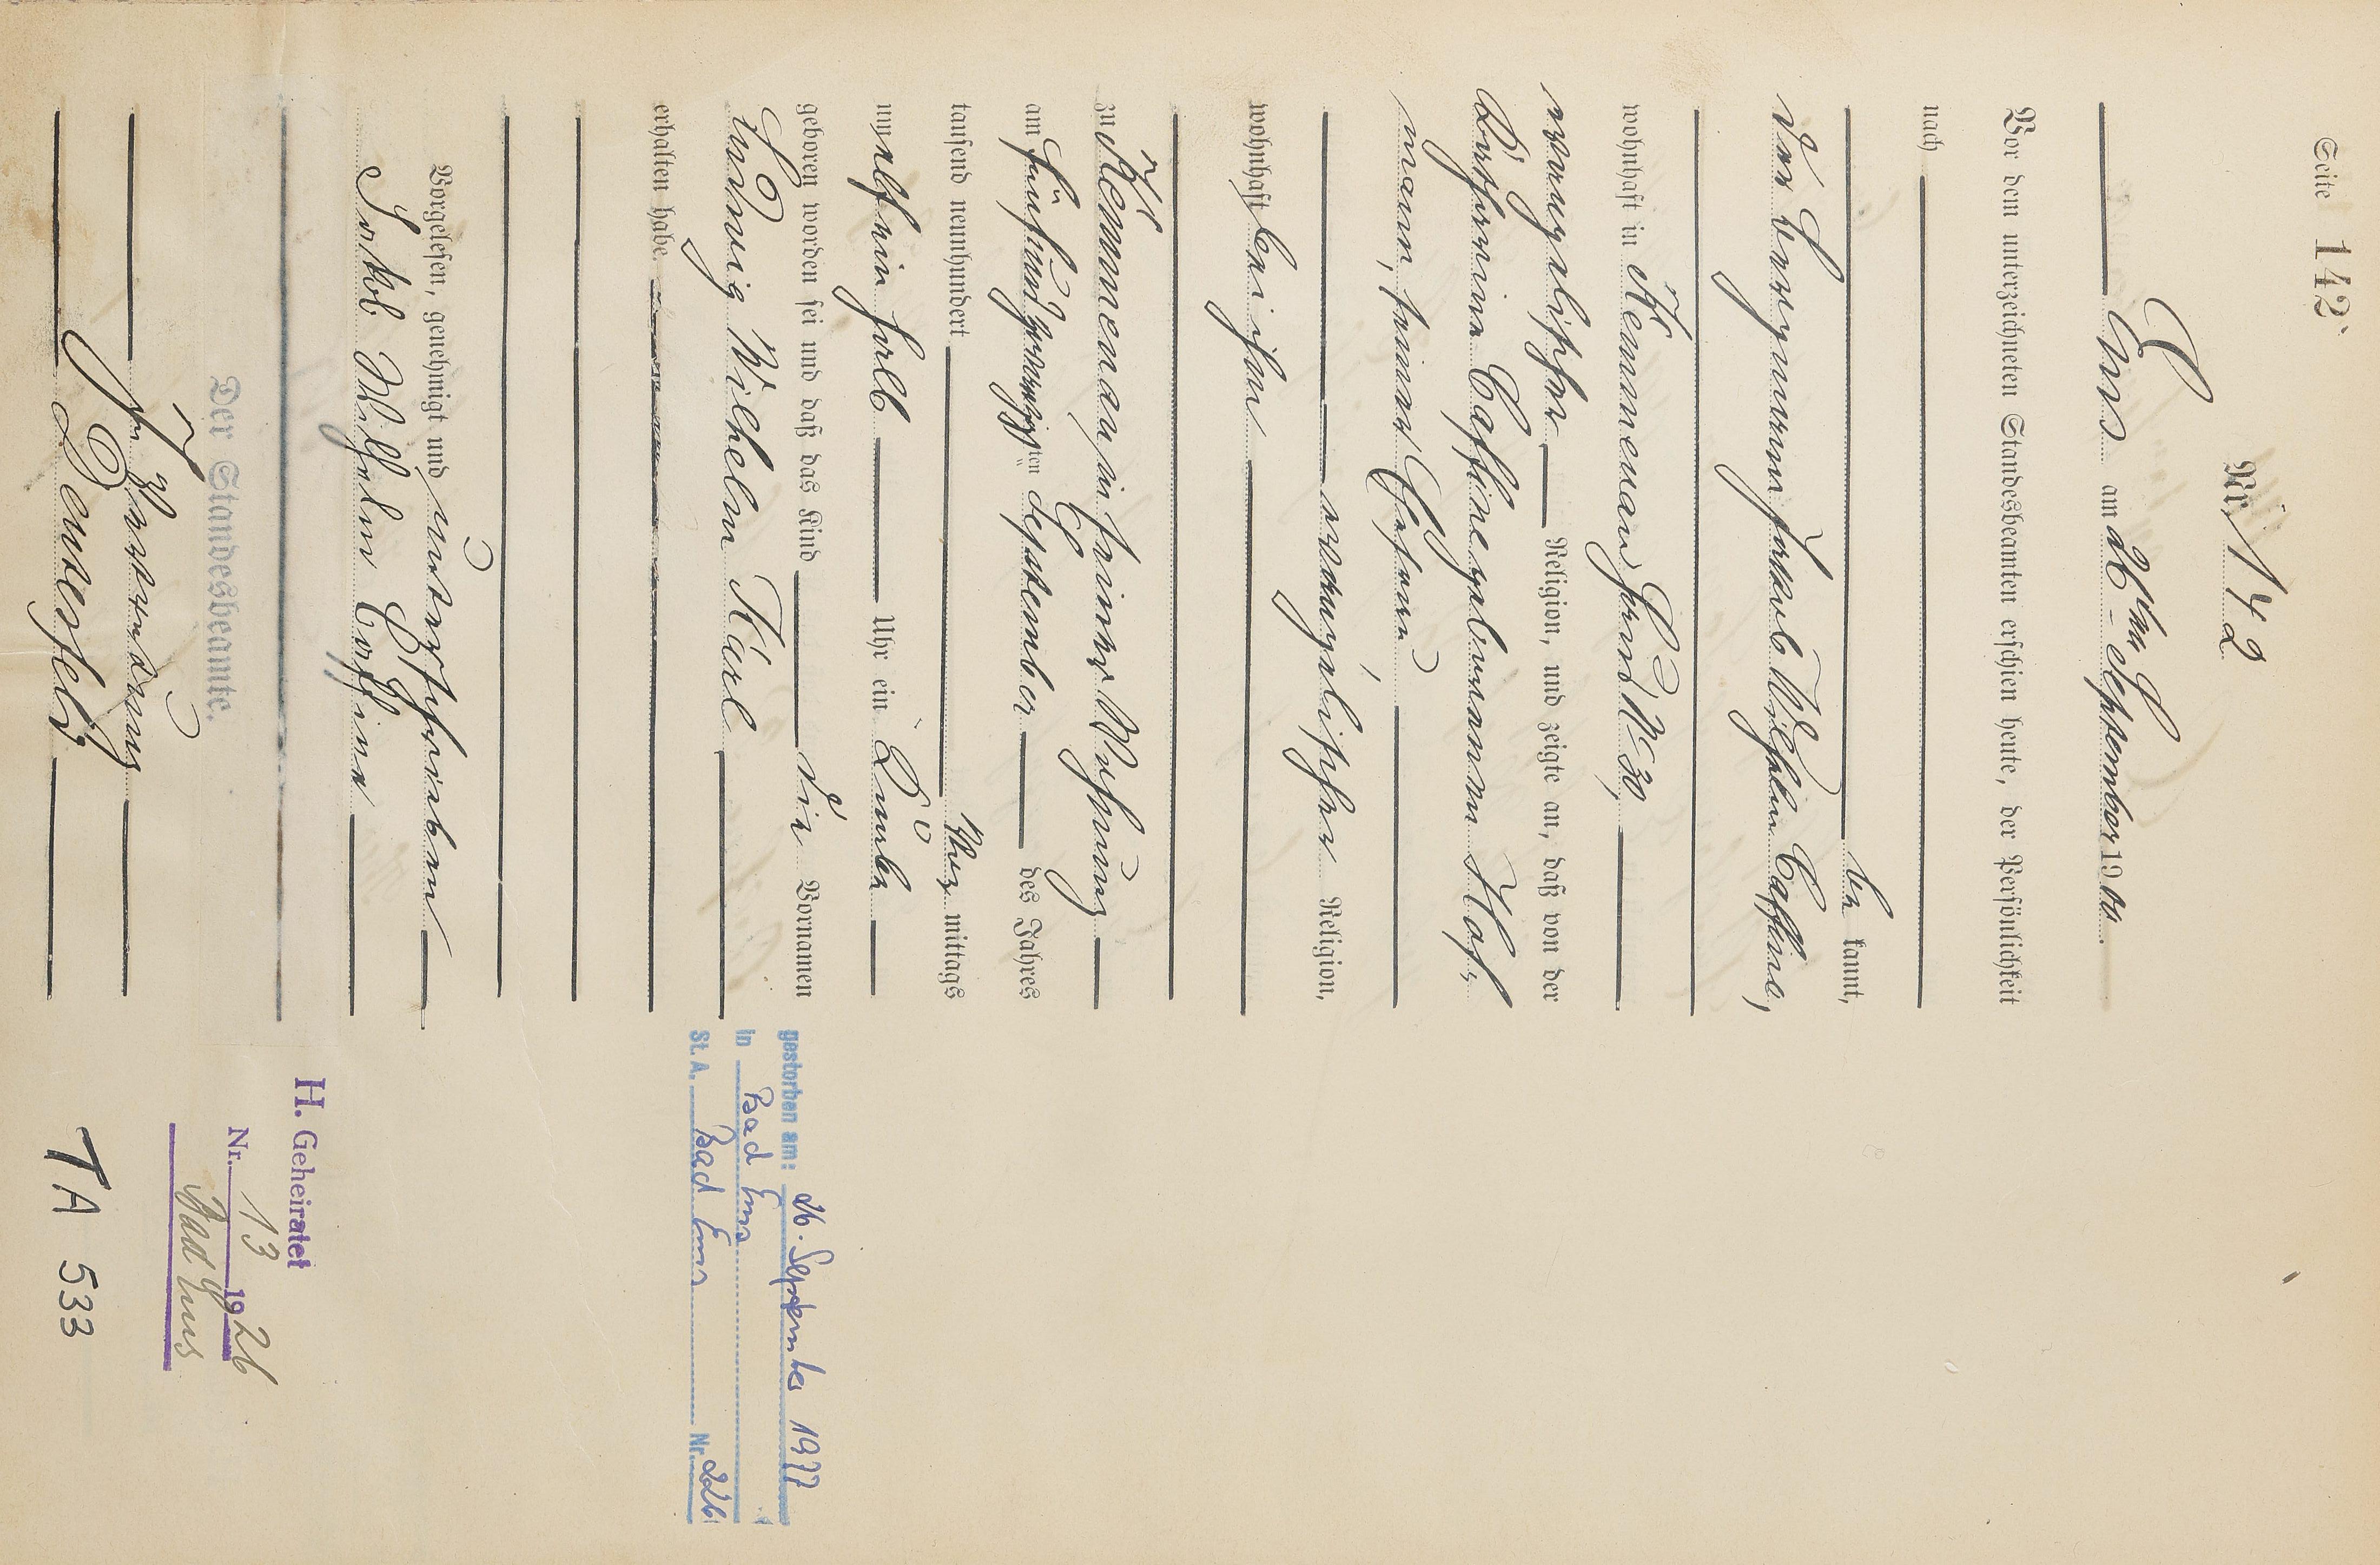 Seite 142
Nr. 142
Ems am 26ten September 1900.
Vor dem unterzeichneten Standesbeamten erschien heute, der Persönlichkeit
nach
be kannt,
der Bergmann Jacob Wilhelm Caffine,
wohnhaft in Kemmenau No 30,
evangelischer Religion, und zeigte an, daß von der
Caffine geborenen Hof-
mann, seiner Ehefrau
evangelischer Religion,
wohnhaft bei ihm
zu Kemmenau in seiner Wohnung
am fünfundzwanzigsten September des Jahres
tausend neunhundert Vor mittags
um elfein halb Uhr ein Knabe
geboren worden sei und daß das Kind die Vornamen
Ludwig Wilhelm Karl
erhalten habe.
Vorgelesen, genehmigt und unterschrieben
Jakob Wilhelm Caffine
Der Standesbeamte.
In Vertretung
gestorben am: 26. September 1977
in Bad Ems
St. A. Bad Ems Nr. 226
H. Geheiratet
Nr. 13 1926
Bad Ems
TA 533